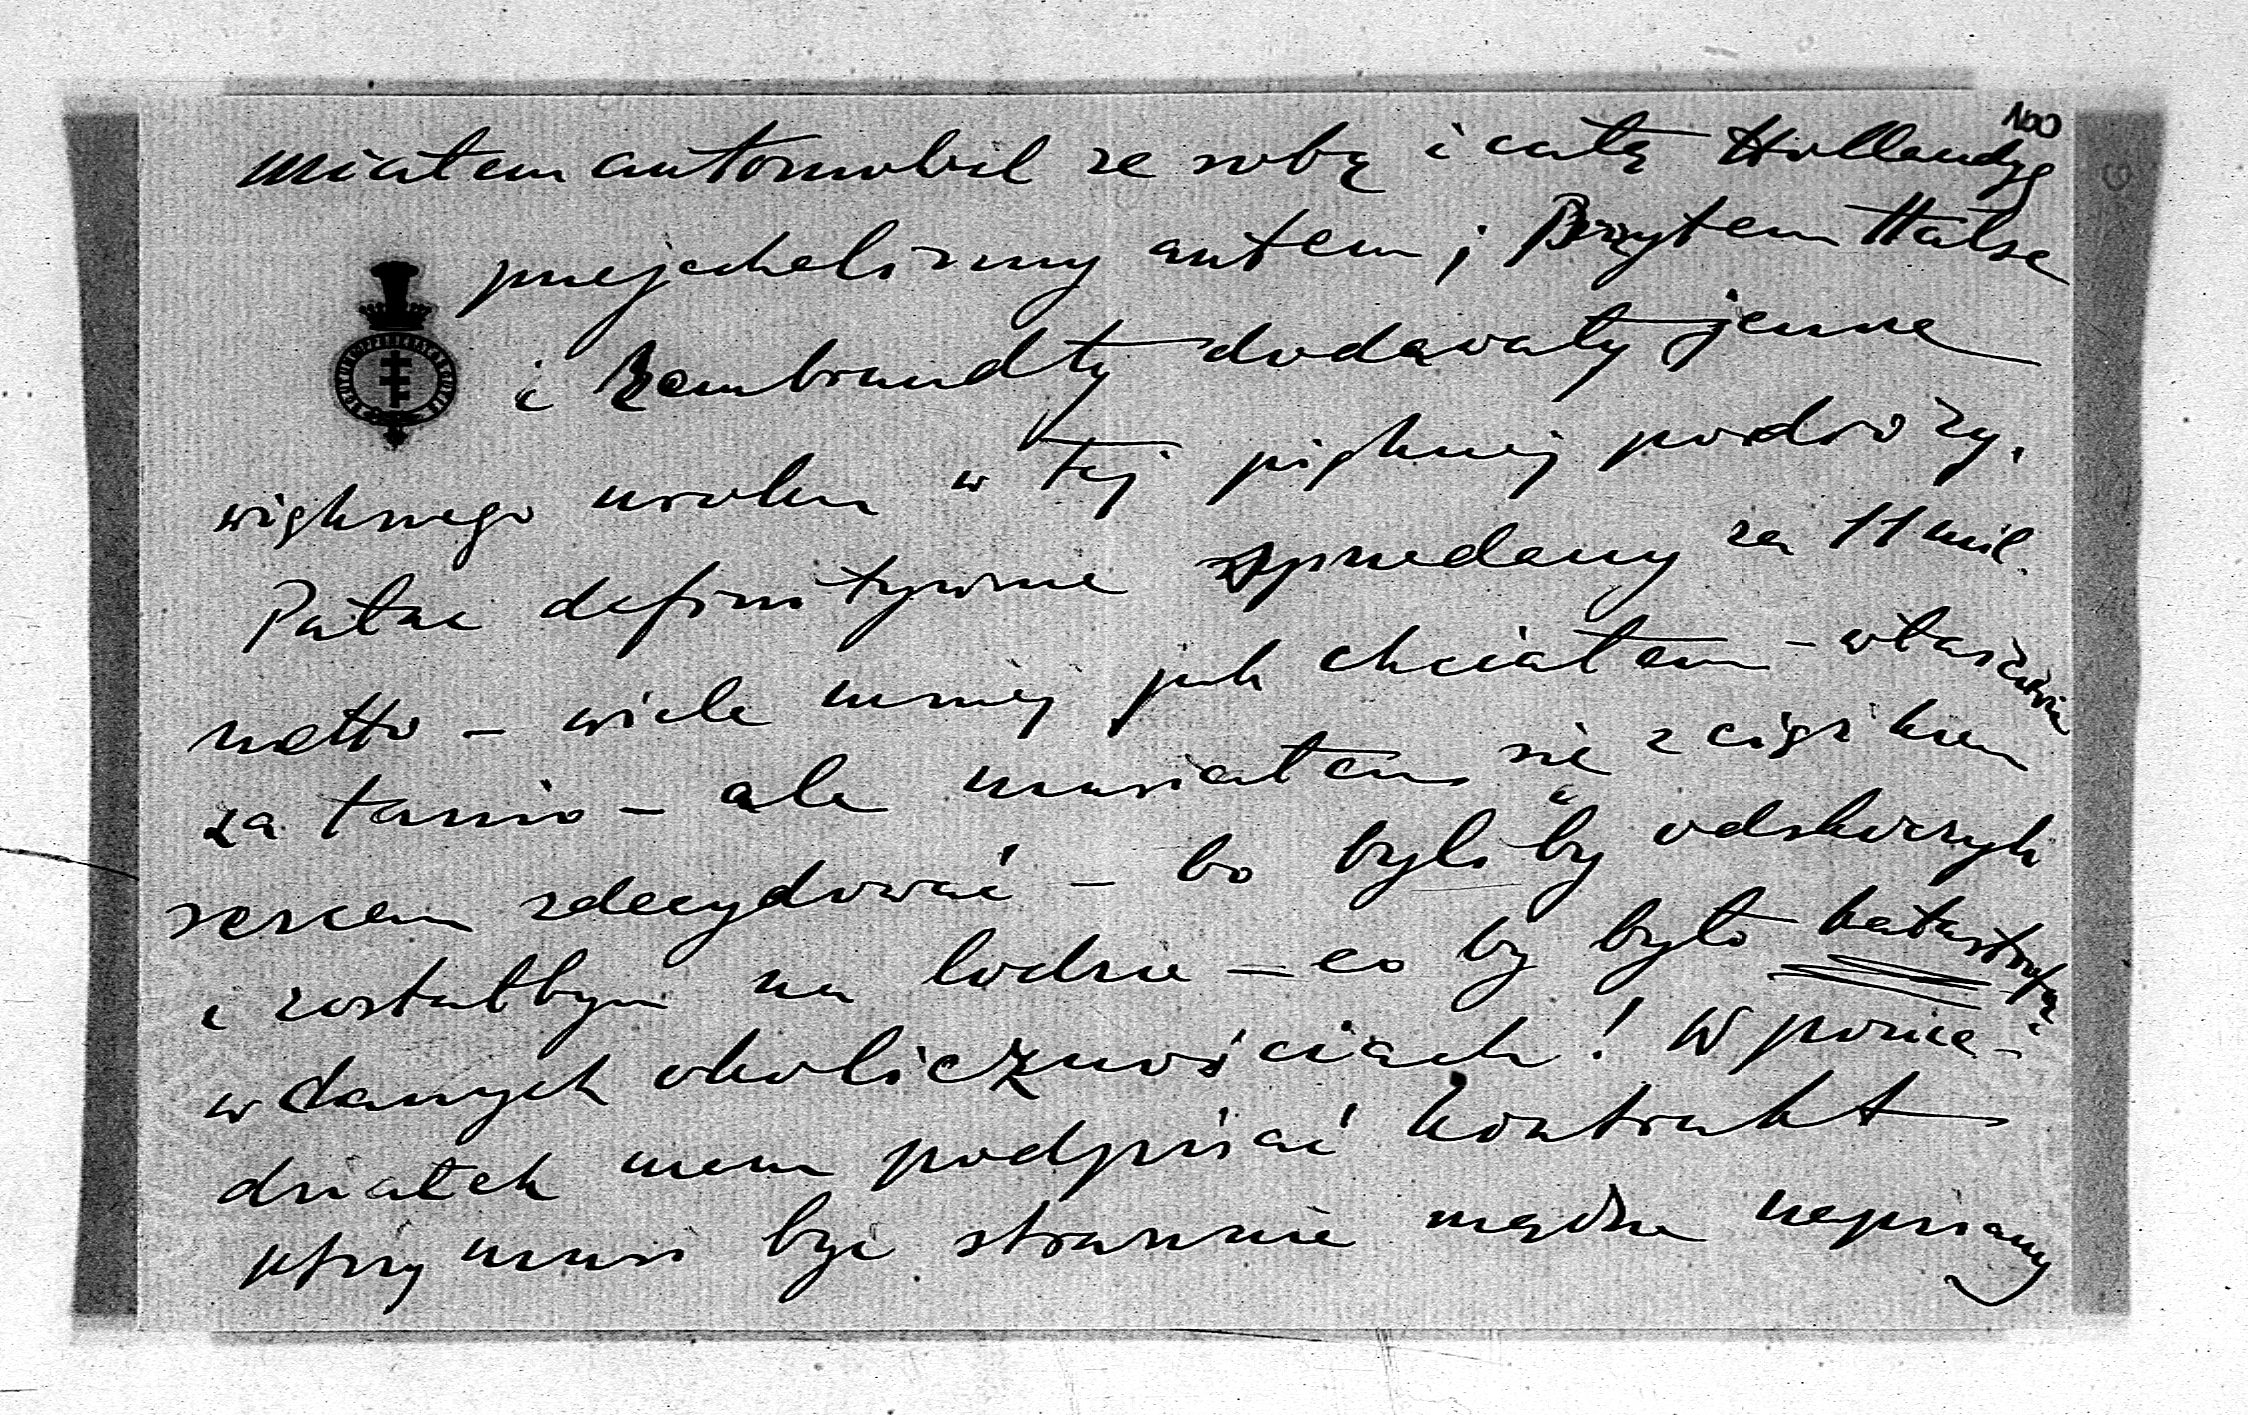 miałem automobil ze sobą i całą Hollandyę
przejechaliśmy autem; Przytem Halse
i Rembrandty dodawały jeszcze
większego uroku w tej pięknej podróży.
Pałac definitywnie sprzedany za 11 mil.
netto – wiele mniej jak chciałem – właściwie
za tanio – ale musiałem się z ciężkiem
sercem zdecydować – bo byliby odskoczyli
i zostałbym na lodzie – co by było katastrofą
w danych okolicznościach! W ponie-
działek mam podpisać kontrakt
który musi być strasznie mądrze napisany